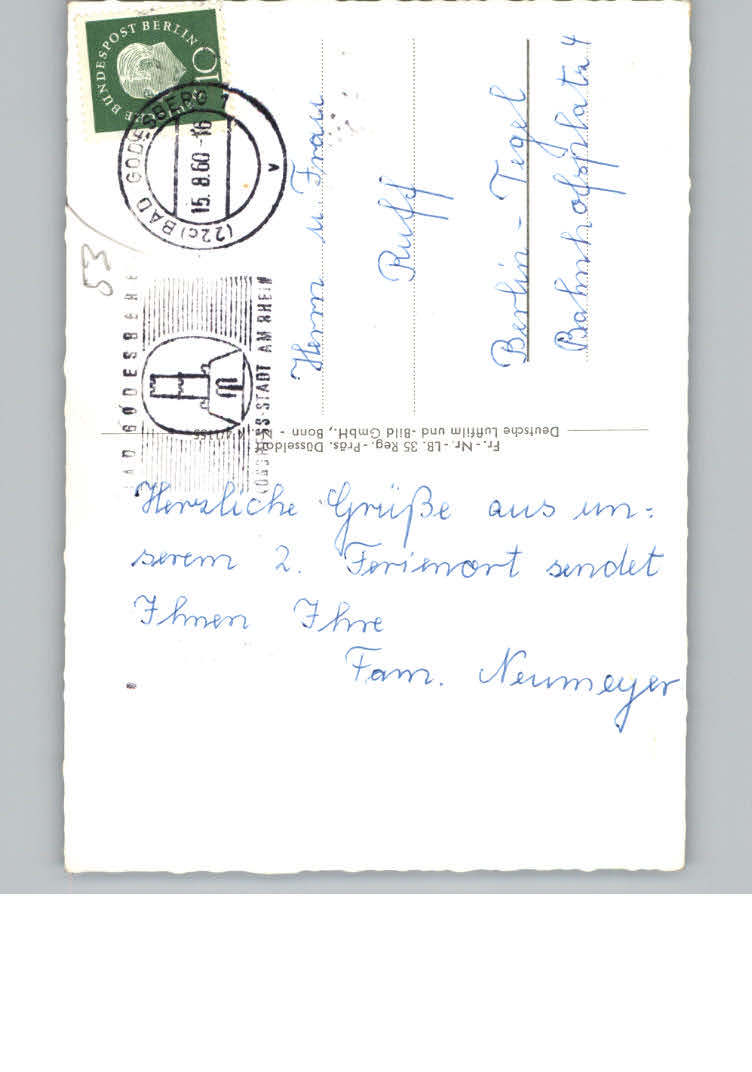 DEUTSCHE BUNDESPOST BERLIN
10
(22c) BAD GODESBERG 1
15.8.60-16
v
53
BAD GODESBERG
KONGRESS-STADT AM RHEIN
Herrn u. Frau
Ruff
Berlin-Tegel
Bahnhofsplatz 4
Deutsche Luftfilm und -Bild GmbH., Bonn -
Fr.-Nr.-LB. 35 Reg.-Präs. Düsseldorf
Herzliche Grüße aus un-
serem 2. Ferienort sendet
Ihnen Ihre
Fam. Neumeyer